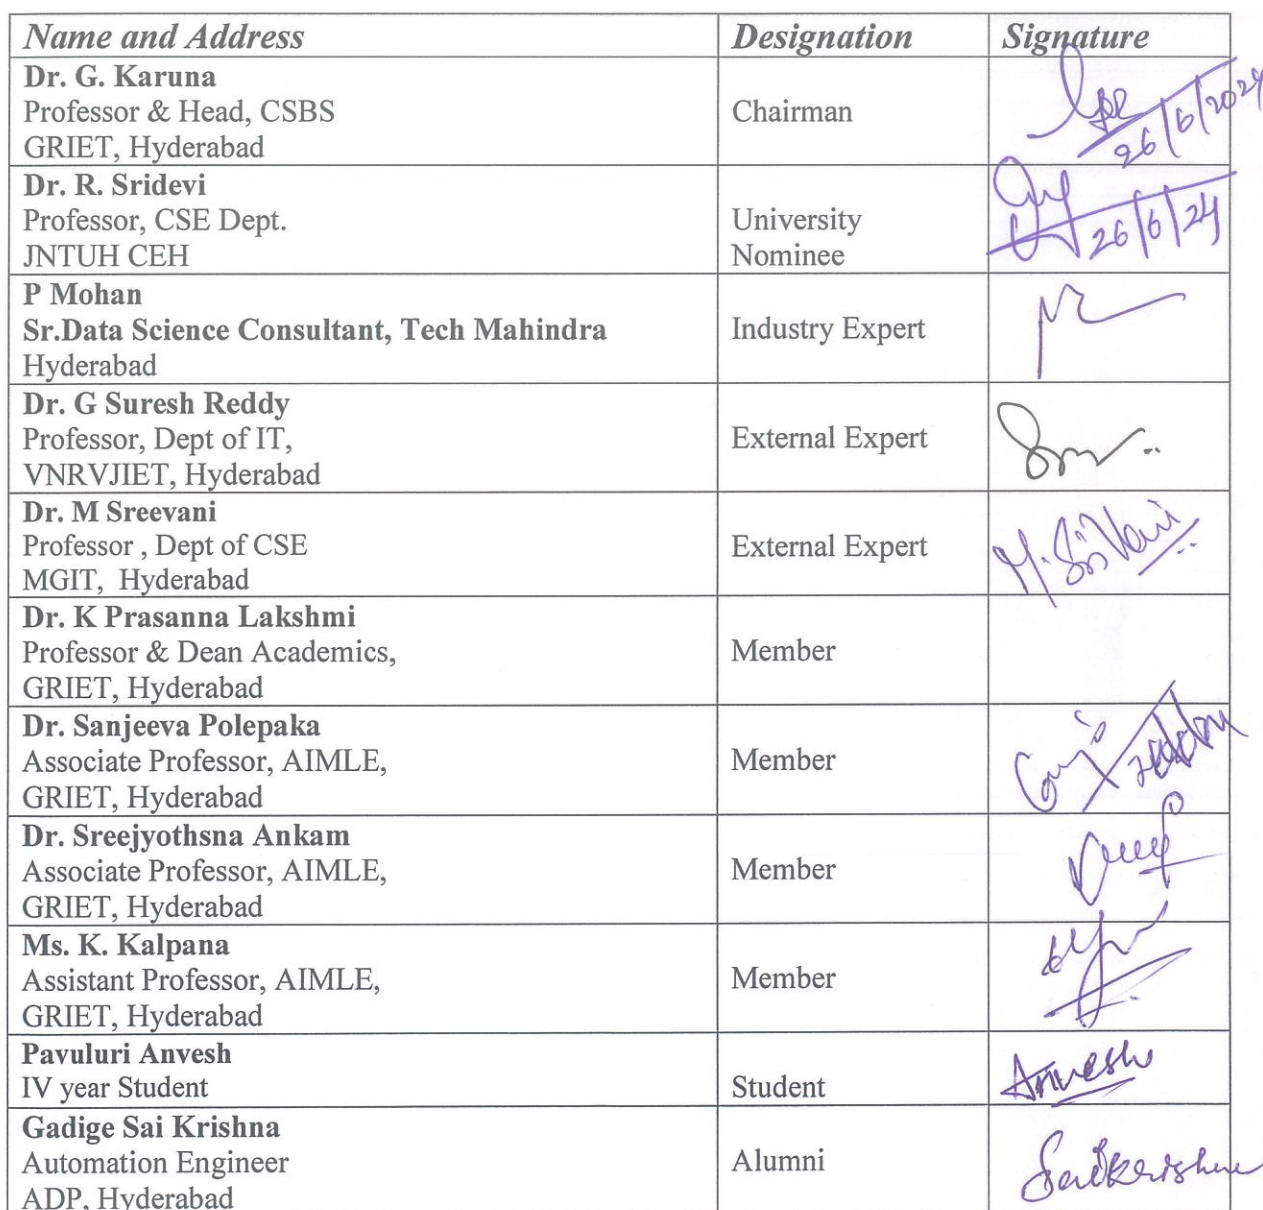 Name and Address Designation Signature
Dr. G. Karuna
Professor & Head, CSBS
GRIET, Hyderabad
Chairman
26/6/2024
Dr. R. Sridevi
Professor, CSE Dept.
JNTUH CEH
University
Nominee
26/6/24
P Mohan
Sr.Data Science Consultant, Tech Mahindra
Hyderabad
Industry Expert
Dr. G Suresh Reddy
Professor, Dept of IT,
VNRVJIET, Hyderabad
External Expert
Dr. M Sreevani
Professor , Dept of CSE
MGIT, Hyderabad
External Expert
M. SriVani
Dr. K Prasanna Lakshmi
Professor & Dean Academics,
GRIET, Hyderabad
Member
Dr. Sanjeeva Polepaka
Associate Professor, AIMLE,
GRIET, Hyderabad
Member
Dr. Sreejyothsna Ankam
Associate Professor, AIMLE,
GRIET, Hyderabad
Member
Ms. K. Kalpana
Assistant Professor, AIMLE,
GRIET, Hyderabad
Member
Pavuluri Anvesh
IV year Student
Student
Anvesh
Gadige Sai Krishna
Automation Engineer
ADP, Hyderabad
Alumni
Saikrishna